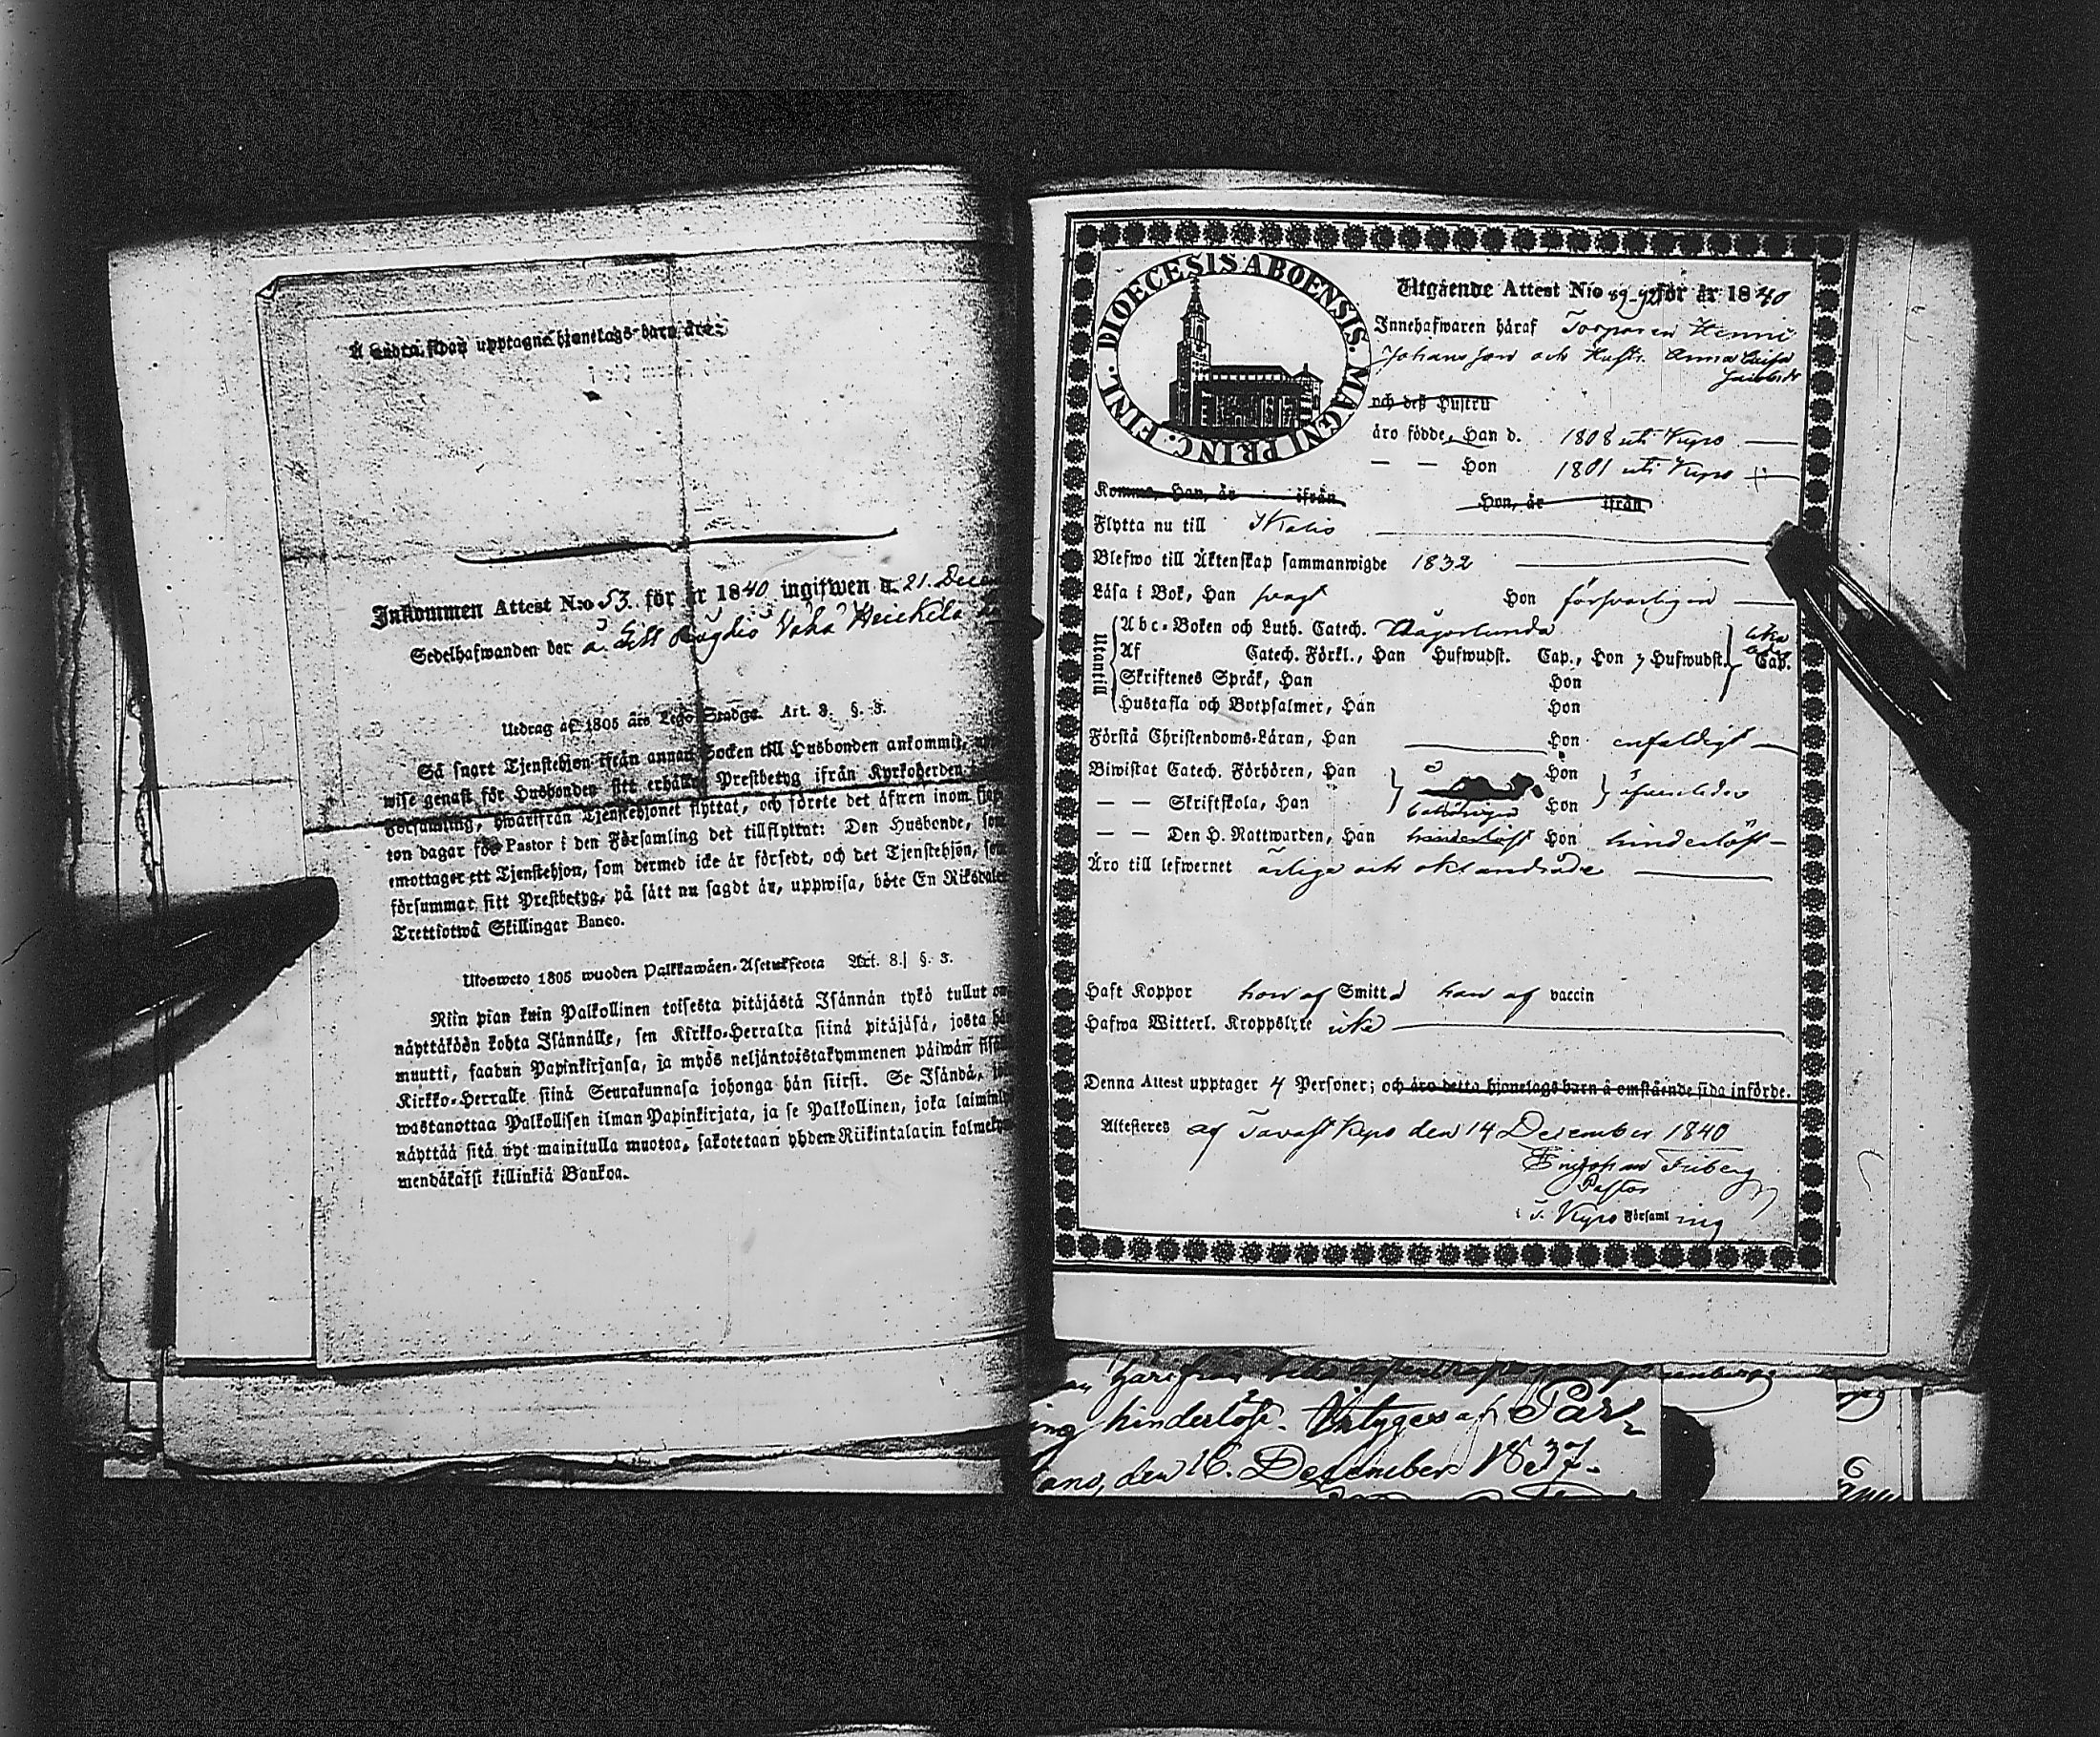 Å andra sidan upptagne hjonelags barn äro:
Inkommen Attest N:o 53. för år 1840 ingifwen d. 21. Decem
Sedelhafwanden bor å
Utdrag af 1805 års Lego Stadga. Art. 3. §. 3.
Så snart Tjenstehjon ifrån annan Socken till Husbonden ankommit,
wise genast för Husbonden sitt erhållna Prestbetyg ifrån Kyrkoherden
Församling, hwarifrån Tjenstehjonet flyttat, och förete det äfwen inom fjor
ton dagar för Pastor i den Församling det tillflyttat: Den Husbonde, som
emottager ett Tjenstehjon, som dermed icke är försedt, och det Tjenstehjon, som
försummar sitt Prestbetyg, på sätt nu sagdt är, uppwisa, böte En Riksdaler
Trettiotwå Skillingar Banco.
Ulosweto 1805 wuoden Palkkawäen-Asetuksesta Art. 8. §. 3.
Niin pian kuin Palkollinen toisesta pitäjästä Isännän tykö tullut on,
näyttäköön kohta Isännälle, sen Kirkko-Herralta siinä pitäjäsä, josta hän
muutti, saadun Papinkirjansa, ja myös neljäntoistakymmenen päiwän sisä
Kirkko-Herralle siinä Seurakunnasa johonga hän siirsi. Se Isändä, jo
wastanottaa Palkollisen ilman Papinkirjata, ja se Palkollinen, joka laiminly
näyttää sitä nyt mainitulla muotoa, sakotetaan yhden Riikintalarin kalmeky
mendäkaksi killinkiä Bankoa.
DIOECESIS ABOENSIS. MAGNI PRINC. FINL.
Utgående Attest N:o 89-92 för år 1840
Innehafwaren häraf Torparen Henric
Johansson och Hustr. Anna Caisa
och deß Hustru
äro födde, Han d. 1808 uti Kyro
— — Hon 1801 uti Kyro
Komne, Han, år ifrån Hon, år ifrån
Flytta nu till Ikalis
Blefwo till Äktenskap sammanwigde 1832
Läsa i Bok, Han swagt Hon förswarligen
Utantill
Abc-Boken och Luth. Catech. någorlunda
Af Catech. Förkl., Han Hufwudst. Cap., Hon 3 Hufwudst. Cap.
Skriftenes Språk, Han Hon
Hustafla och Botpsalmer, Han Hon
Förstå Christendoms-Läran, Han Hon enfaldigt
Biwistat Catech. Förhören, Han Hon
— — Skriftskola, Han behörigen Hon äfwenledes
— — Den H. Nattwarden, Han hinderlöst Hon hinderlöst
Äro till lefwernet ärlige och oklandrade
Haft Koppor hon af Smitt han af vaccin
Hafwa Witterl. Kroppslyte icke
Denna Attest upptager 4 Personer; och äro detta hjonelags barn å omstående sida införde.
Attesteres af Tavast Kyro den 14 December 1840
Friberg
Pastor
i T. Kyro Församling
ing hinderlöst. Betyges af Par-
ano, den 16. December 1837.